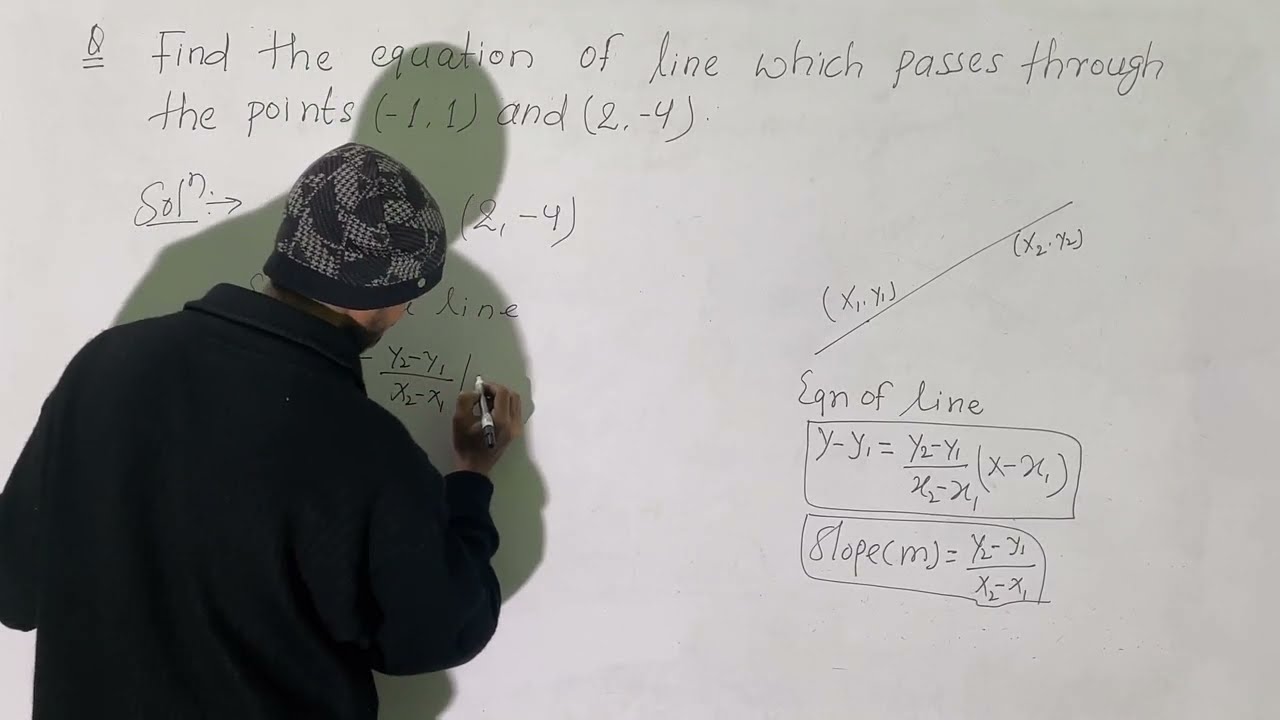 Q Find the equation of line which passes through
the points (-1, 1) and (2, -4).
Solⁿ:→ (2, -4)
line
y₂-y₁/x₂-x₁ (
(x₂, y₂)
(x₁, y₁)
Eqn of line
y-y₁ = y₂-y₁/x₂-x₁ (x-x₁)
Slope(m) = y₂-y₁/x₂-x₁